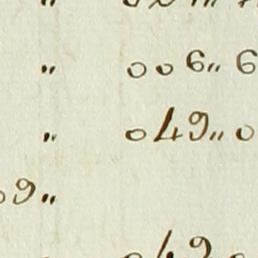 " 006,, 6
" 049,, 0
09,,